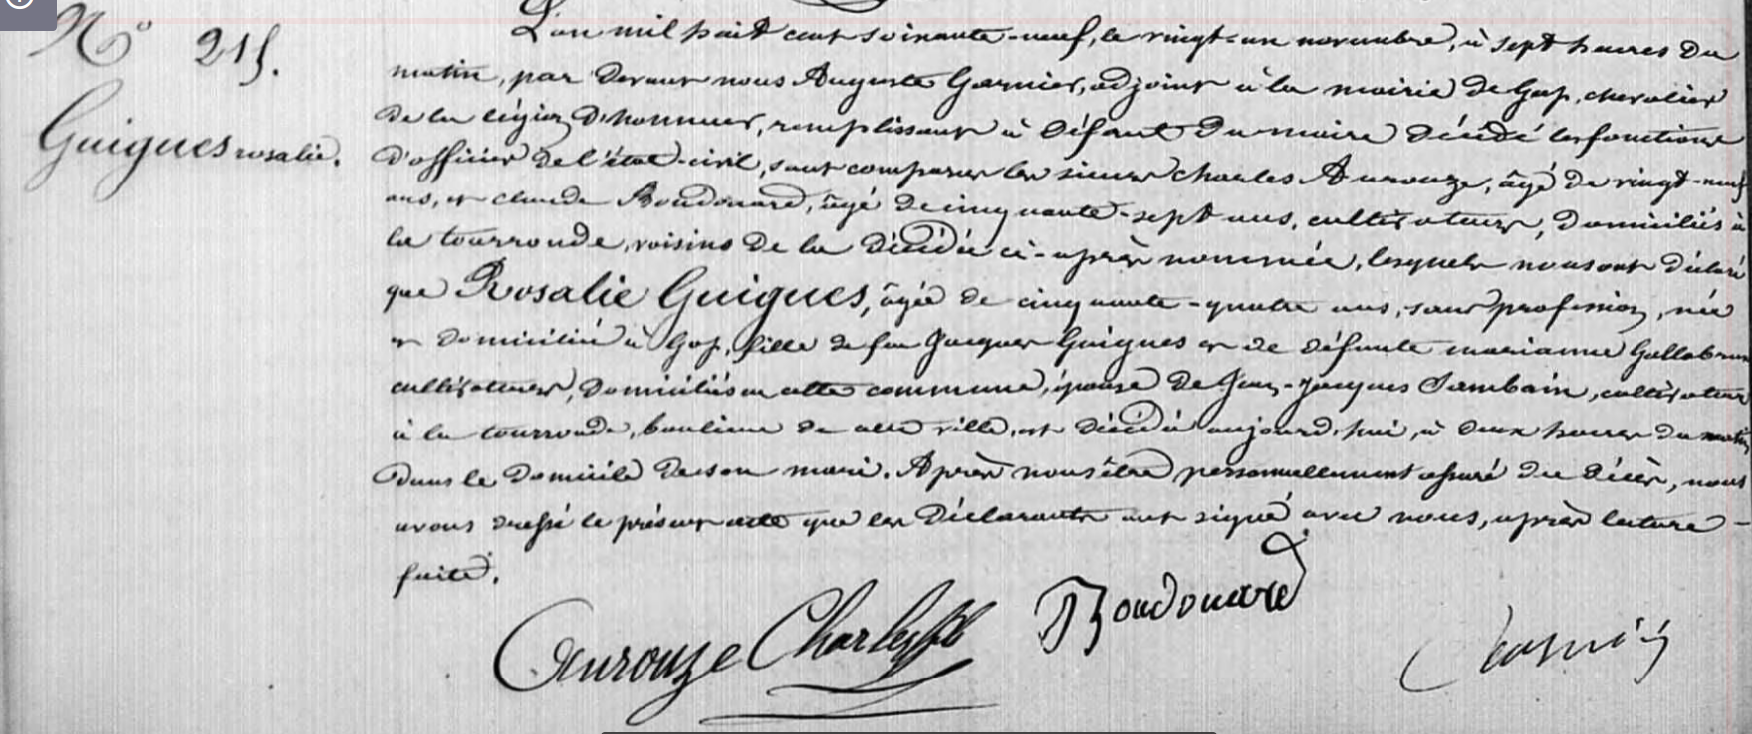 N° 215.
Guigues rosalie.
L'an mil huit cent soixante-neuf, le vingt-un novembre, à sept heures du
matin, par devant nous Auguste Garnier, adjoint à la mairie de Gap, chevalier
de la légion d'honneur, remplissant à défaut du maire décédé les fonctions
d'officier de l'état-civil, sont comparus les sieurs Charles Aurouze, âgé de vingt-neuf
ans, et claude Boudouard, âgé de cinquante-sept ans, cultivateurs, domiciliés à
la tourronde, voisins de la décédée ci-après nommée, lesquels nous ont déclaré
que Rosalie Guigues, âgée de cinquante-quatre ans, sans profession, née
et domiciliée à Gap, fille de feu Jacques Guigues et de défunte marianne Gallabrun
cultivateurs, domiciliés en cette commune, épouse de Jean-Jacques Sambain, cultivateur
à la tourronde, banlieue de cette ville, est décédée aujourd'hui, à deux heures du matin
dans le domicile de son mari. Après nous être personnellement assuré du décès, nous
avons dressé le présent acte que les déclarants ont signé avec nous, après lecture
faite.
Aurouze Charles fils Boudouard Garnier